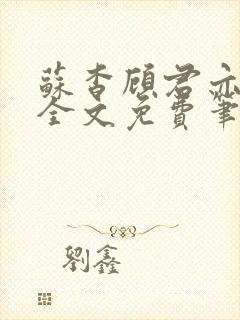 蘇杳顧君亦
全文免費筆
劉鑫